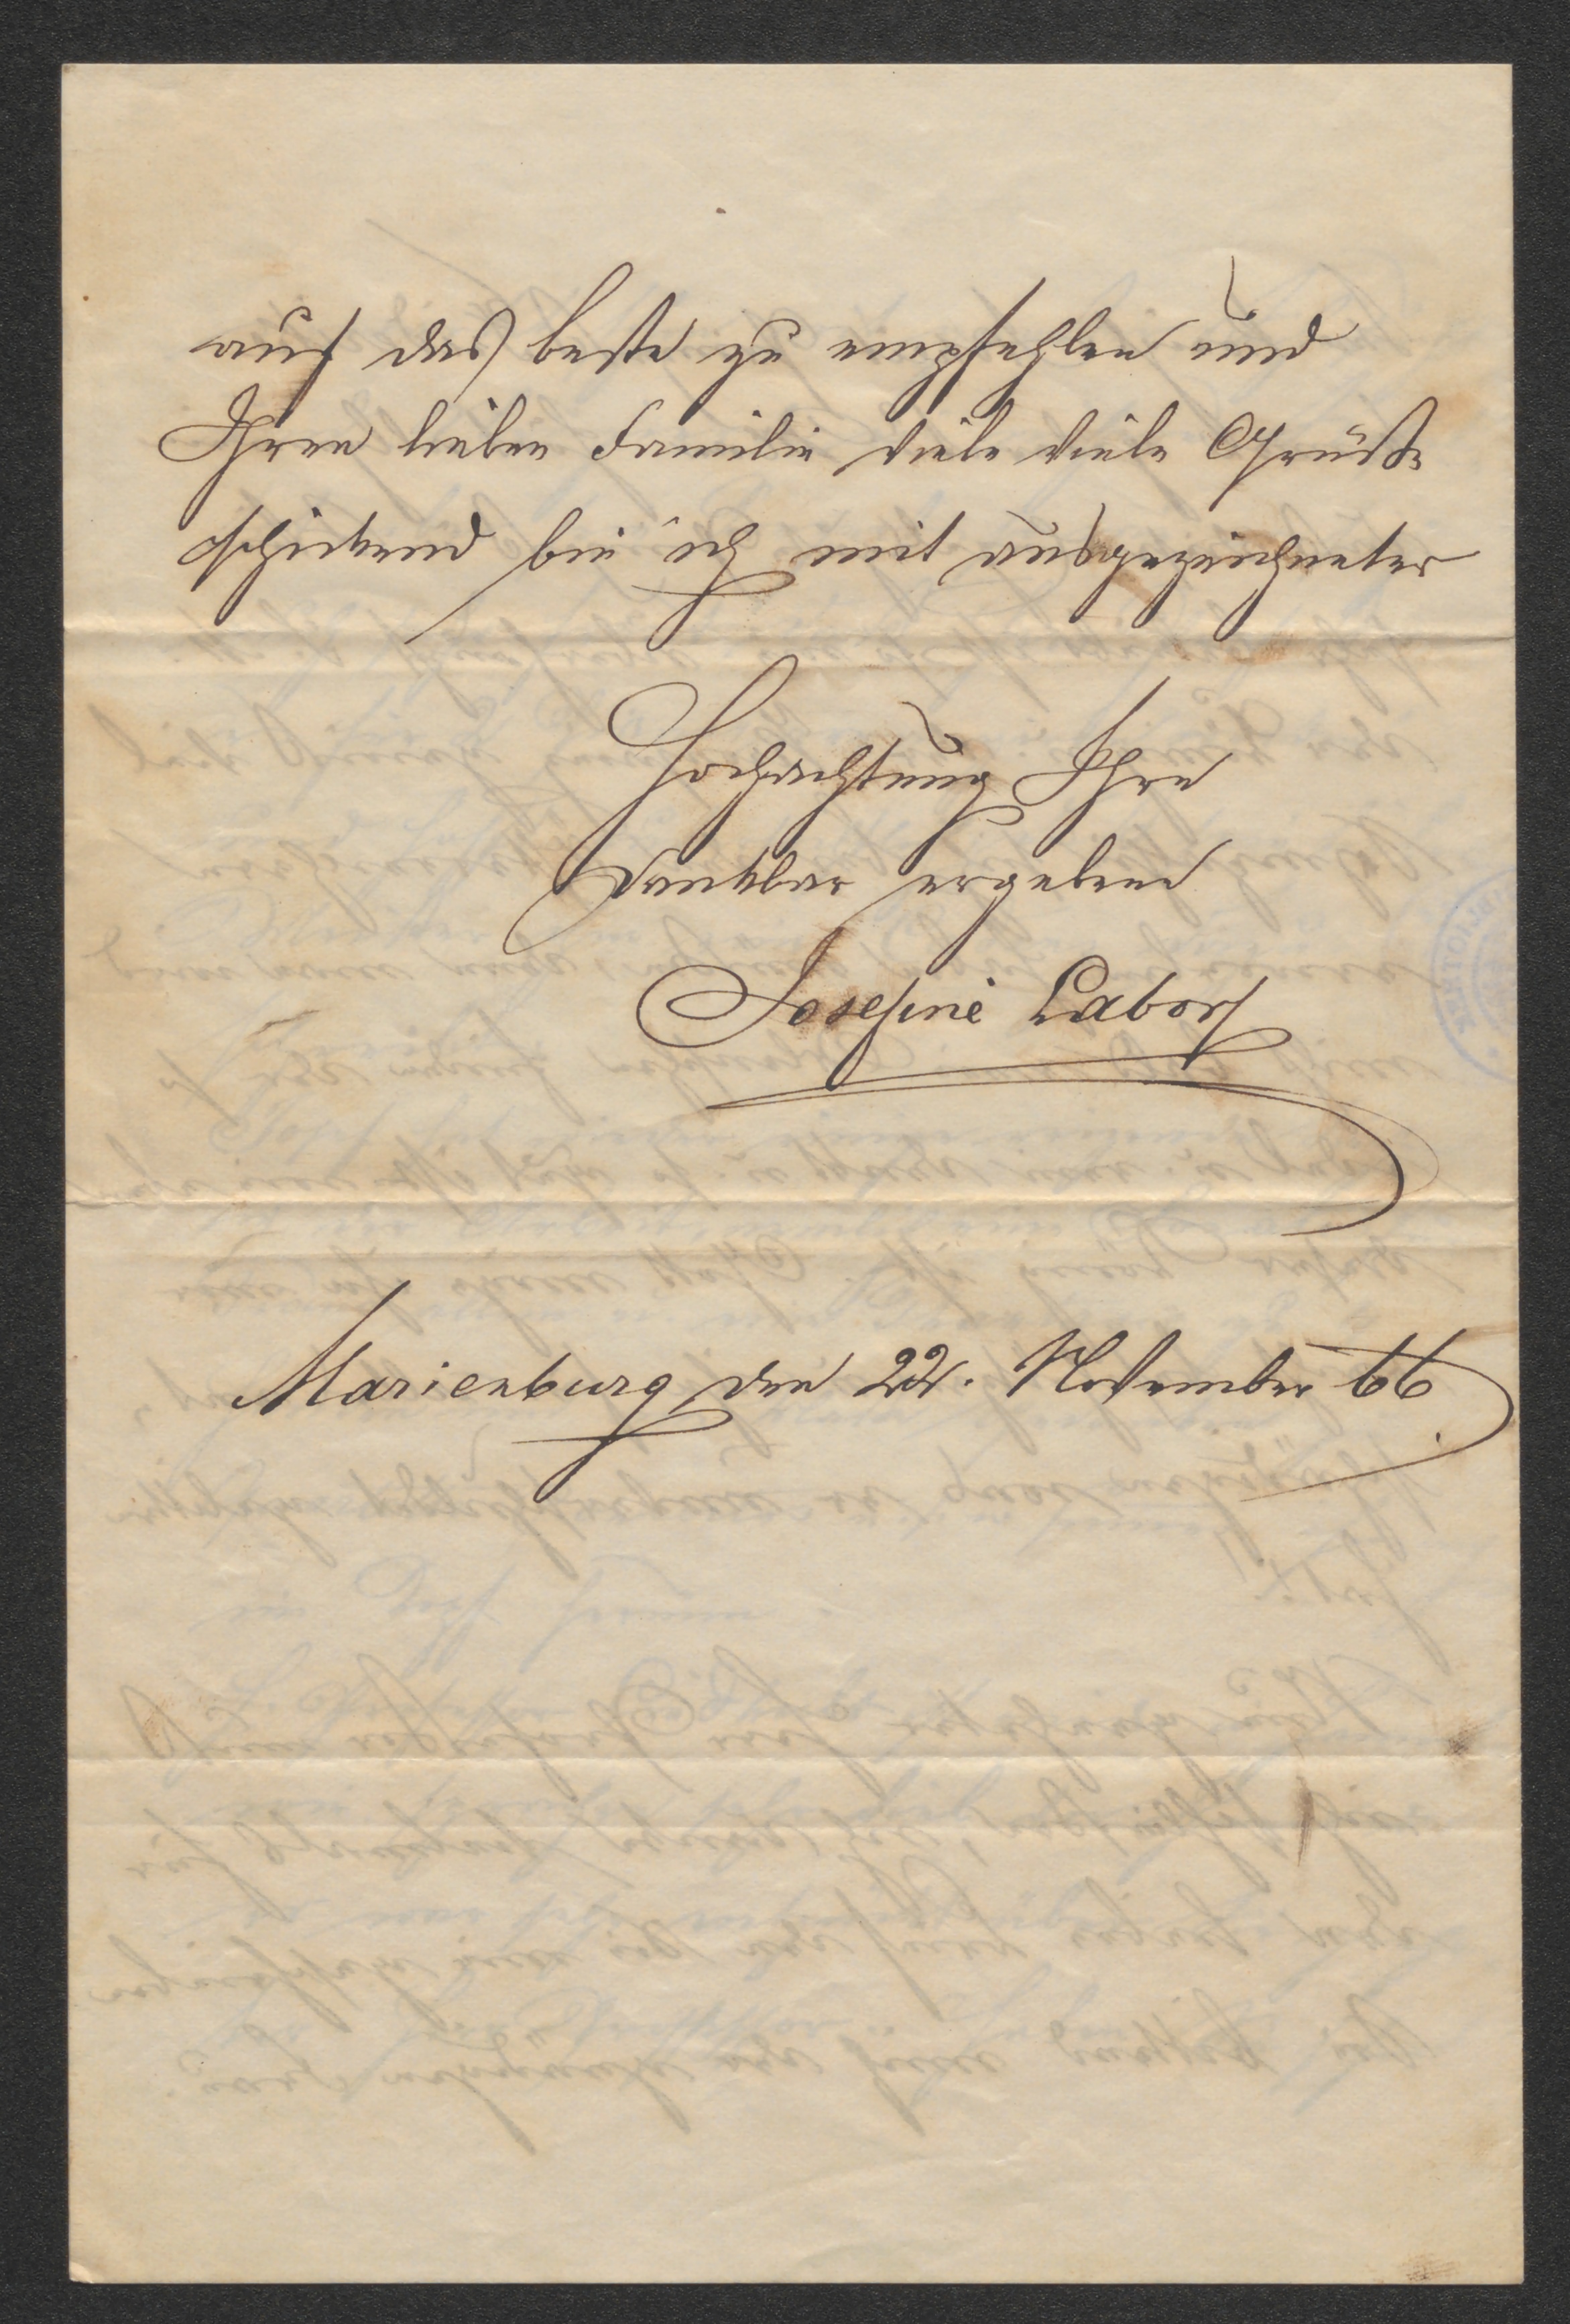 auf das beste zu empfehlen und
Ihrer lieben Familie viele viele Grüße
schickend bin ich mit ausgezeichneter
Hochachtung Ihre
dankbar ergebene
Josefine Labor
Marienburg den 22. November 66